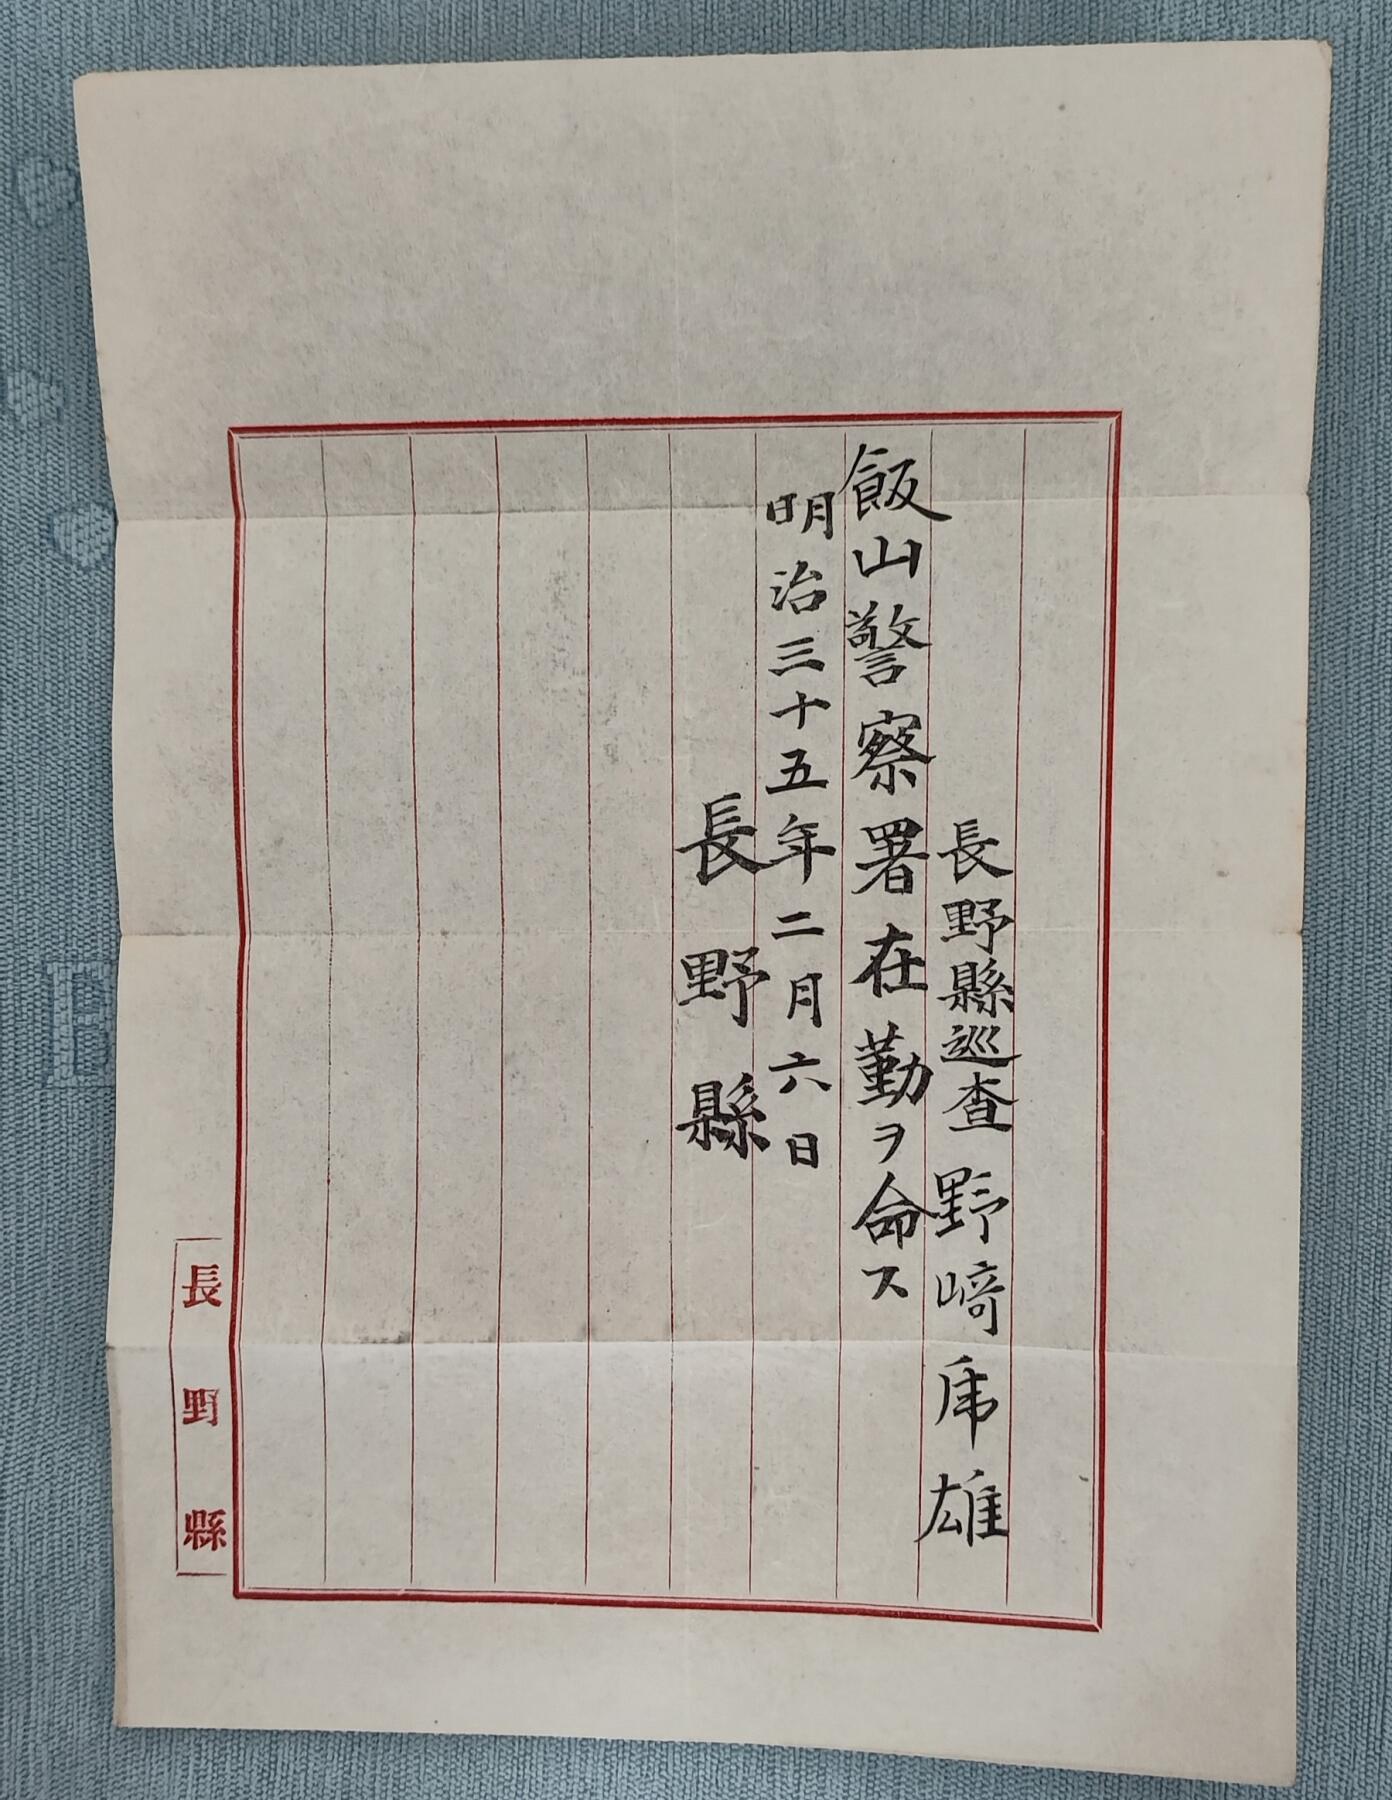 長野縣巡査 野﨑虎雄
飯山警察署在勤ヲ命ス
明治三十五年二月六日
長野縣
長野縣